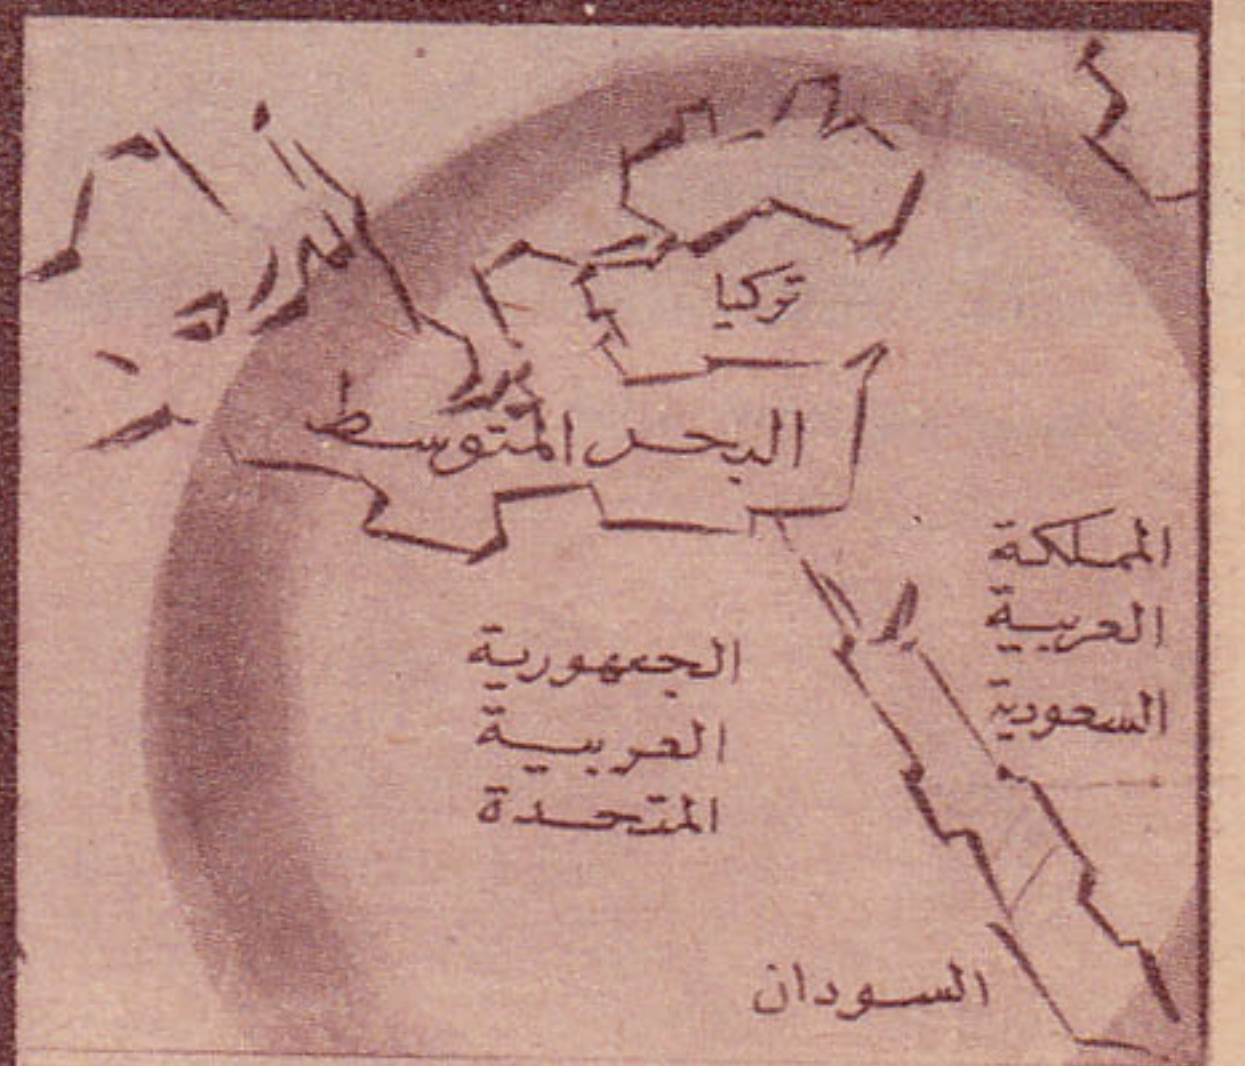 تركيا
البحر المتوسط
المملكة
العربية
السعودية
الجمهورية
العربية
المتحدة
السودان